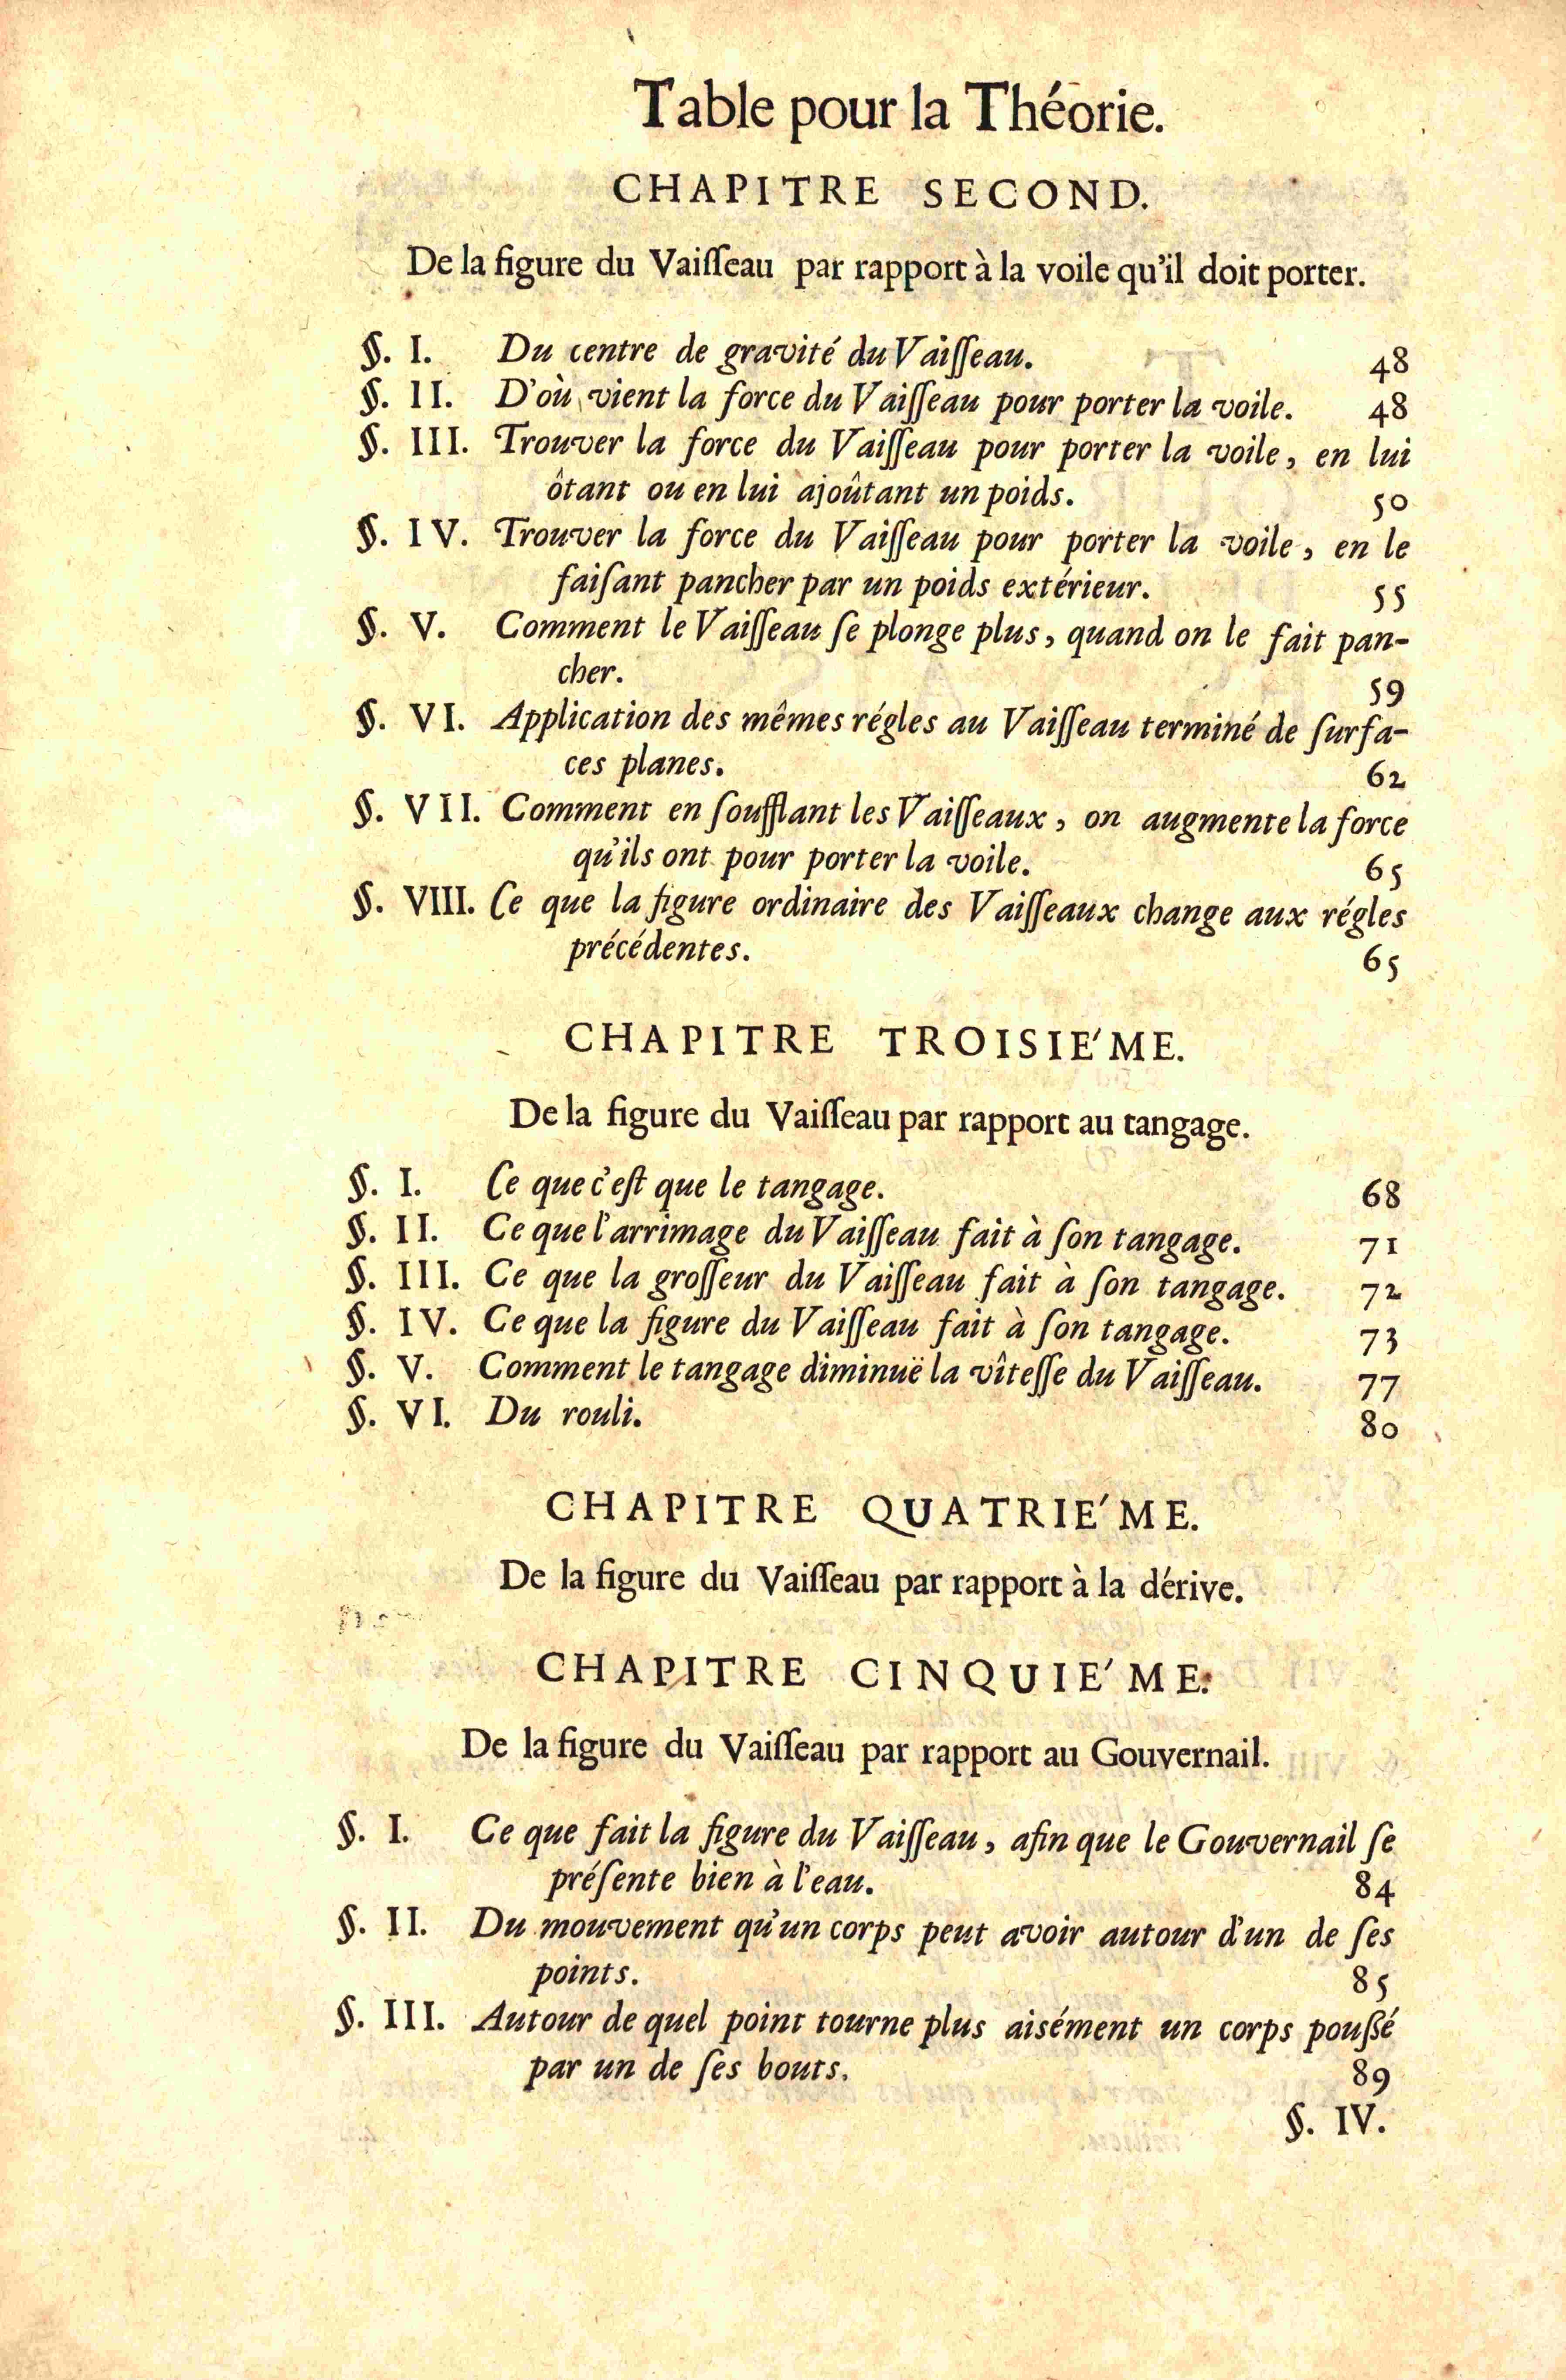 Table pour la Théorie.
CHAPITRE SECOND.
De la figure du Vaiſſeau par rapport à la voile qu'il doit porter.
§. I. Du centre de gravité du Vaiſſeau. 48
§. II. D'où vient la force du Vaiſſeau pour porter la voile. 48
§. III. Trouver la force du Vaiſſeau pour porter la voile, en lui
ôtant ou en lui ajoûtant un poids. 50
§. IV. Trouver la force du Vaiſſeau pour porter la voile, en le
faiſant pancher par un poids extérieur. 55
§. V. Comment le Vaiſſeau ſe plonge plus, quand on le fait pan-
cher. 59
§. VI. Application des mêmes régles au Vaiſſeau terminé de ſurfa-
ces planes. 62
§. VII. Comment en ſoufflant les Vaiſſeaux, on augmente la force
qu'ils ont pour porter la voile. 65
§. VIII. Ce que la figure ordinaire des Vaiſſeaux change aux régles
précédentes. 65
CHAPITRE TROISIE'ME.
De la figure du Vaiſſeau par rapport au tangage.
§. I. Ce que c'eſt que le tangage. 68
§. II. Ce que l'arrimage du Vaiſſeau fait à ſon tangage. 71
§. III. Ce que la groſſeur du Vaiſſeau fait à ſon tangage. 72
§. IV. Ce que la figure du Vaiſſeau fait à ſon tangage. 73
§. V. Comment le tangage diminuë la vîteſſe du Vaiſſeau. 77
§. VI. Du rouli. 80
CHAPITRE QUATRIE'ME.
De la figure du Vaiſſeau par rapport à la dérive.
CHAPITRE CINQUIE'ME.
De la figure du Vaiſſeau par rapport au Gouvernail.
§. I. Ce que fait la figure du Vaiſſeau, afin que le Gouvernail ſe
préſente bien à l'eau. 84
§. II. Du mouvement qu'un corps peut avoir autour d'un de ſes
points. 85
§. III. Autour de quel point tourne plus aisément un corps pouſsé
par un de ſes bouts. 89
§. IV.